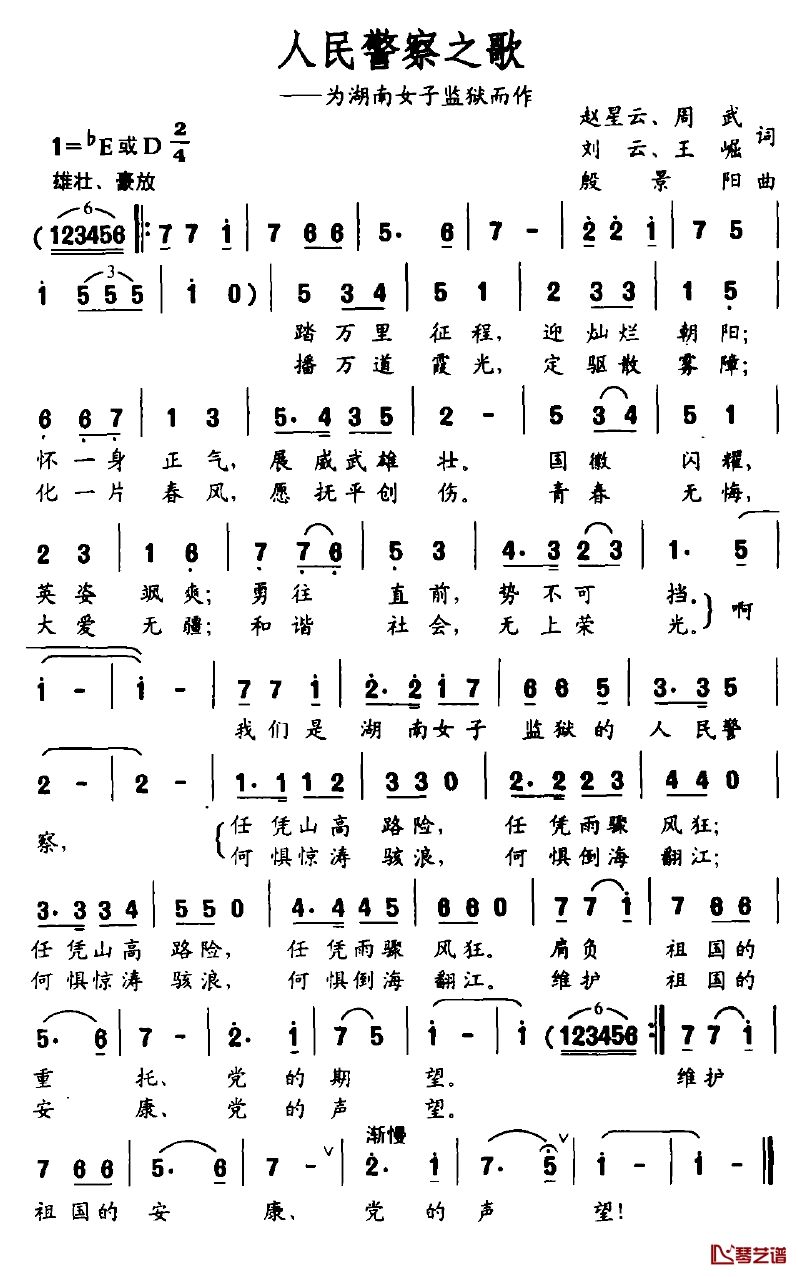 人民警察之歌
——为湖南女子监狱而作
赵星云、周 武
刘 云、王 崛 词
殷 景 阳 曲
1=♭E或D 2/4
雄壮、豪放
6
(123456 ‖: 7 7 i | 7 6 6 | 5· 6 | 7 - | 2 2 1 | 7 5 |
3
i 5 5 5 | i 0 ) | 5 3 4 | 5 1 | 2 3 3 | 1 5 |
踏 万 里 征 程， 迎 灿 烂 朝 阳；
播 万 道 霞 光， 定 驱 散 雾 障；
6 6 7 | 1 3 | 5· 4 3 5 | 2 - | 5 3 4 | 5 1 |
怀 一 身 正 气， 展 威 武 雄 壮。 国 徽 闪 耀，
化 一 片 春 风， 愿 抚 平 创 伤。 青 春 无 悔，
2 3 | 1 6 | 7 7 6 | 5 3 | 4· 3 2 3 | 1· 5 |
英 姿 飒 爽； 勇 往 直 前， 势 不 可 挡。 啊
大 爱 无 疆； 和 谐 社 会， 无 上 荣 光。
i - | i - | 7 7 i | 2· 2 1 7 | 6 6 5 | 3· 3 5 |
我 们 是 湖 南 女 子 监 狱 的 人 民 警
2 - | 2 - | 1· 1 1 2 | 3 3 0 | 2· 2 2 3 | 4 4 0 |
察， 任 凭 山 高 路 险， 任 凭 雨 骤 风 狂；
何 惧 惊 涛 骇 浪， 何 惧 倒 海 翻 江；
3· 3 3 4 | 5 5 0 | 4· 4 4 5 | 6 6 0 | 7 7 i | 7 6 6 |
任 凭 山 高 路 险， 任 凭 雨 骤 风 狂。 肩 负 祖 国 的
何 惧 惊 涛 骇 浪， 何 惧 倒 海 翻 江。 维 护 祖 国 的
6
5· 6 | 7 - | 2· i | 7 5 | i - | i (123456 :‖ 7 7 i |
重 托、 党 的 期 望。 维 护
安 康、 党 的 声 望。
渐慢
7 6 6 | 5· 6 | 7 - ∨ | 2· i | 7· 5 ∨ | i - | i - ‖
祖 国 的 安 康、 党 的 声 望！
琴艺谱